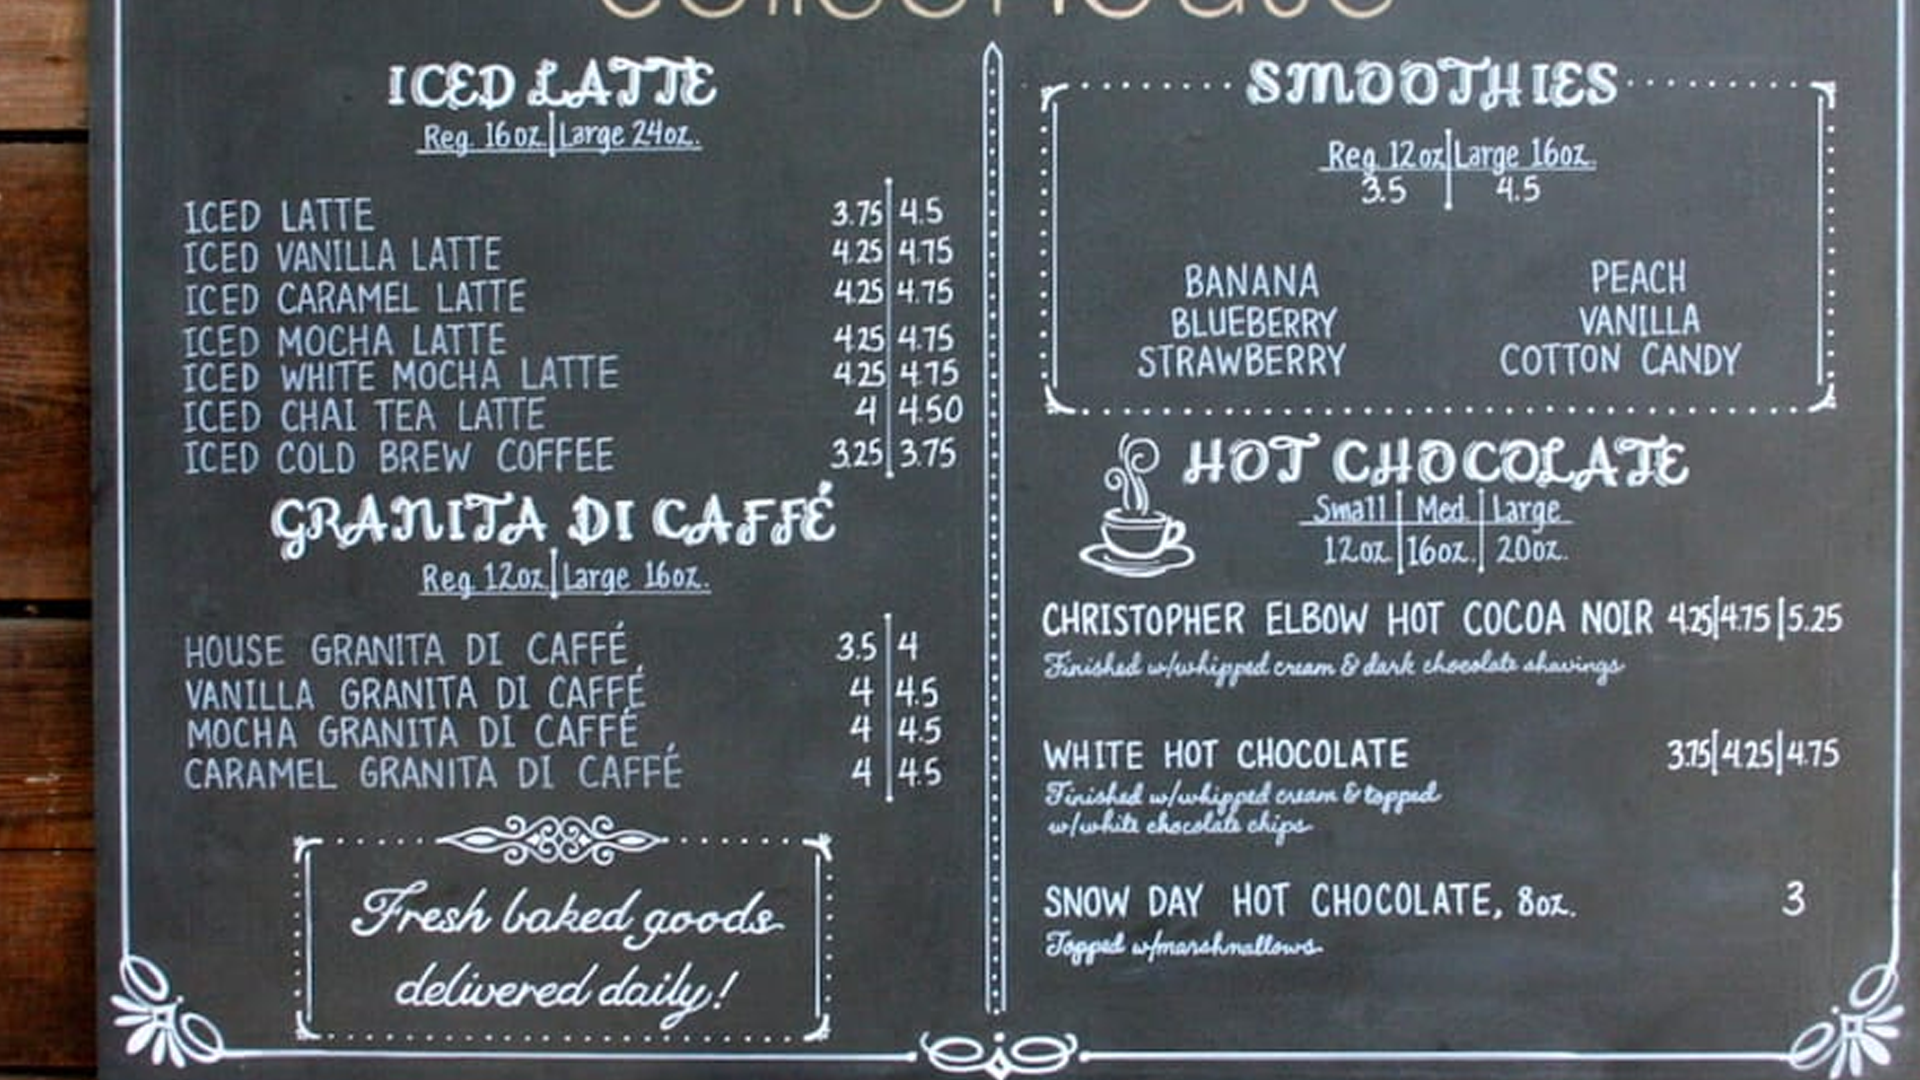 coffeeHouse
ICED LATTE
Reg. 16oz. | Large 24oz.
ICED LATTE 3.75 | 4.5
ICED VANILLA LATTE 4.25 | 4.75
ICED CARAMEL LATTE 4.25 | 4.75
ICED MOCHA LATTE 4.25 | 4.75
ICED WHITE MOCHA LATTE 4.25 | 4.75
ICED CHAI TEA LATTE 4 | 4.50
ICED COLD BREW COFFEE 3.25 | 3.75
GRANITA DI CAFFÉ
Reg. 12oz. | Large 16oz.
HOUSE GRANITA DI CAFFÉ 3.5 | 4
VANILLA GRANITA DI CAFFÉ 4 | 4.5
MOCHA GRANITA DI CAFFÉ 4 | 4.5
CARAMEL GRANITA DI CAFFÉ 4 | 4.5
Fresh baked goods
delivered daily!
SMOOTHIES
Reg. 12oz. | Large 16oz.
3.5 | 4.5
BANANA PEACH
BLUEBERRY VANILLA
STRAWBERRY COTTON CANDY
HOT CHOCOLATE
Small | Med. | Large
12oz. | 16oz. | 20oz.
CHRISTOPHER ELBOW HOT COCOA NOIR 4.25 | 4.75 | 5.25
Finished w/whipped cream & dark chocolate shavings
WHITE HOT CHOCOLATE 3.75 | 4.25 | 4.75
Finished w/whipped cream & topped
w/white chocolate chips
SNOW DAY HOT CHOCOLATE, 8oz. 3
Topped w/marshmallows